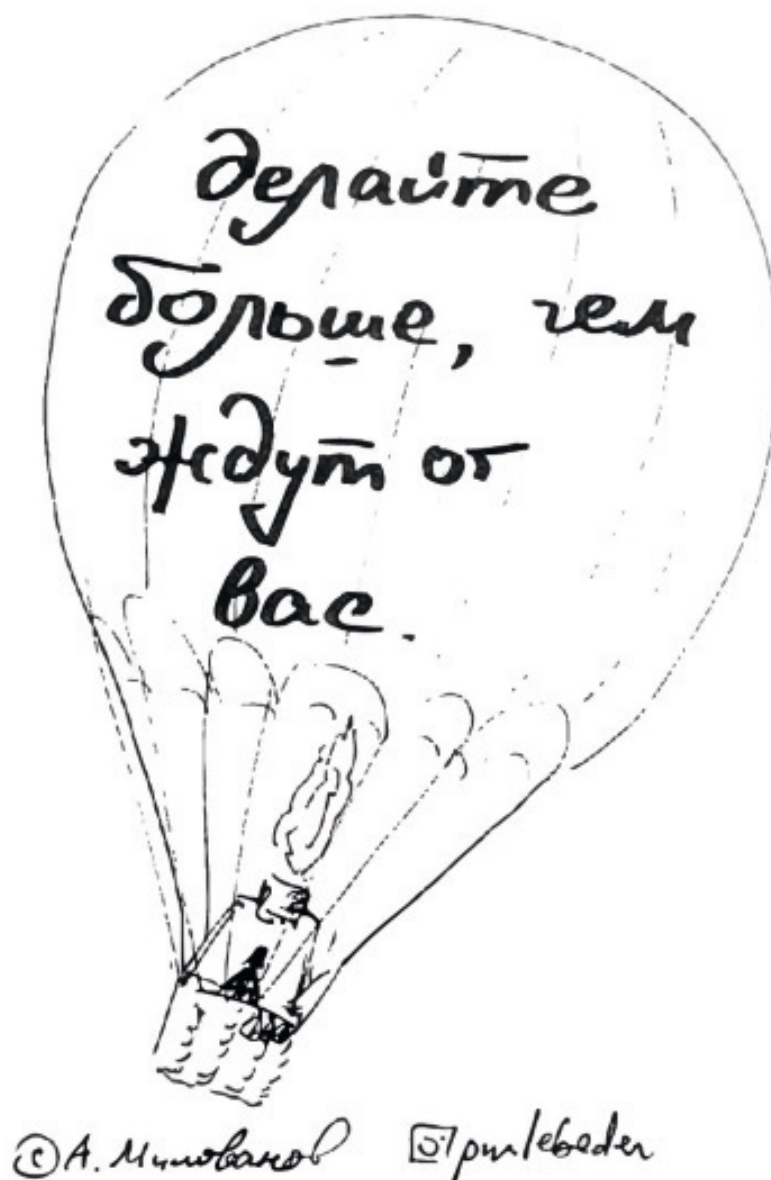 делайте
больше, чем
ждут от
вас.
© А. Милованов pmlebedev